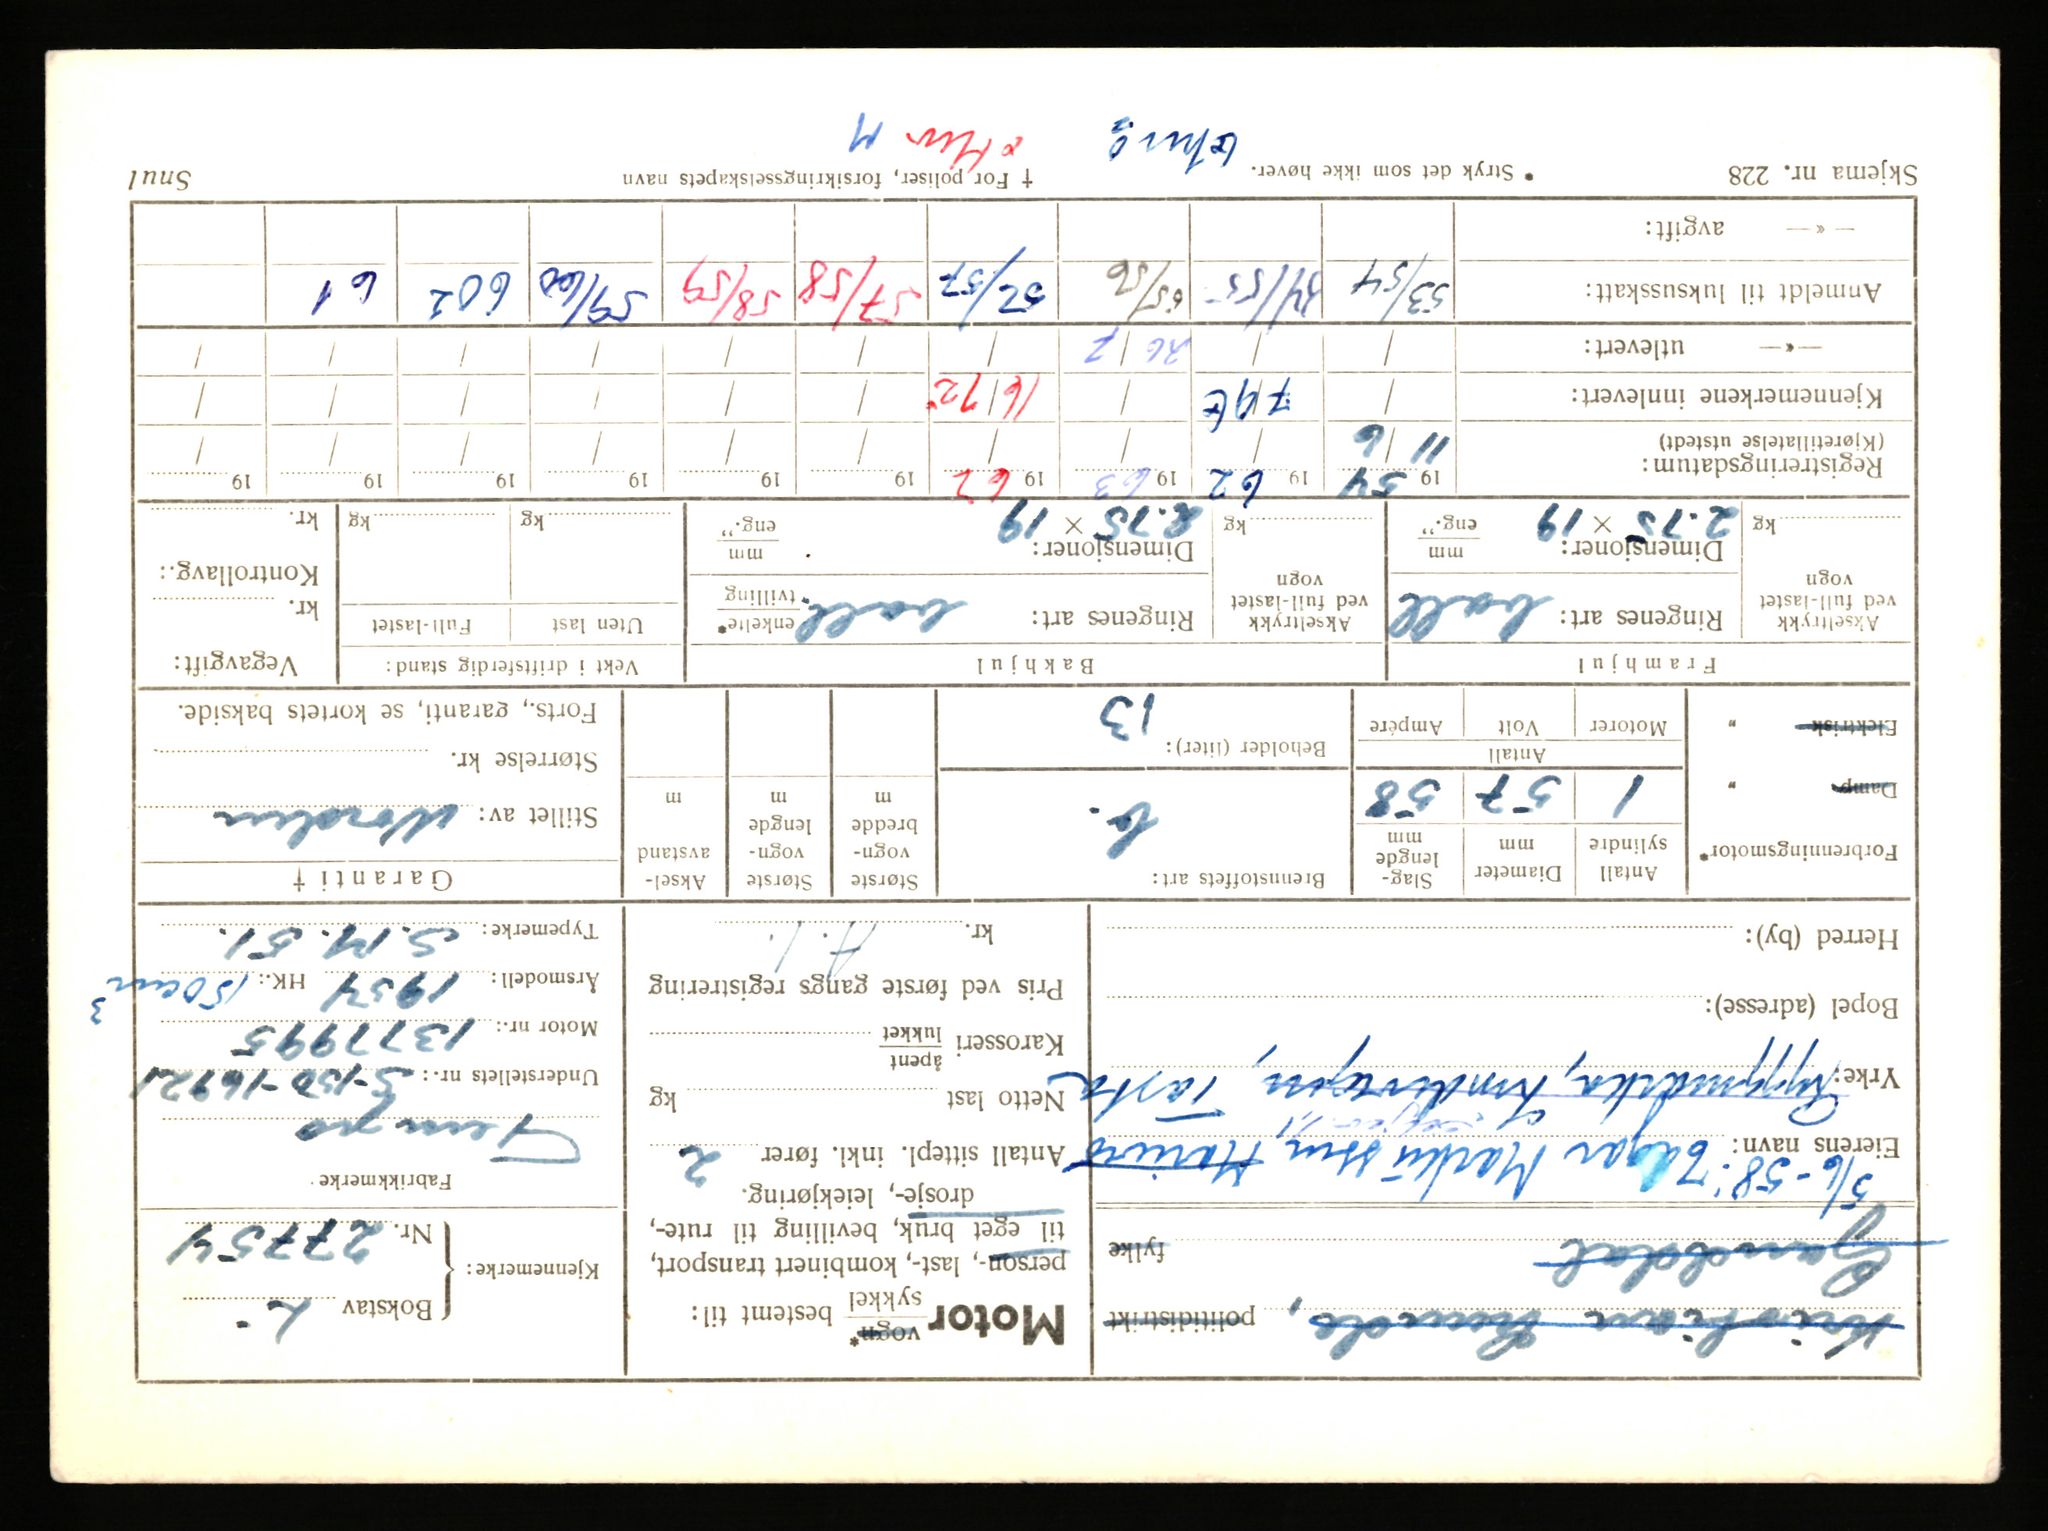 Motor vogn* sykkel bestemt til:
person-, last-, kombinert transport,
til eget bruk, bevilling til rute-,
drosje-, leiekjøring.
Antall sittepl. inkl. fører 2
Netto last kg
Karosseri åpent lukket
Pris ved første gangs registrering
kr. A.1.
Kjennemerke: Bokstav L
Nr. 27754
Fabrikkmerke
Tempo
Understellets nr.: S-150-16921
Motor nr.: 1377995
Årsmodell: 1954 HK.: 150 cm3
Typemerke: S.M. 51.
Kristian Lunde, politidistrikt
Gandddal fylke
5/6-58: Edgar Markussen, Marius
Eierens navn:
Yrke: Ryggmarka, Tasta
Bopel (adresse):
Herred (by):
Forbrenningsmotor*
Damp "
Elektrisk "
Antall sylindre 1
Diameter mm 57
Slag-lengde mm 58
Antall
Motorer Volt Ampére
Brennstoffets art: b.
Beholder (liter): 13
Største vogn-bredde m
Største vogn-lengde m
Aksel-avstand m
Garanti †
Stillet av: Norden
Størrelse kr.
Forts., garanti, se kortets bakside.
Framhjul
Akseltrykk ved full-lastet vogn kg
Ringenes art: ball
Dimensjoner: 2.75 × 19 mm eng."
Bakhjul
Akseltrykk ved full-lastet vogn kg
Ringenes art: ball enkelte* tvilling
Dimensjoner: 2.75 × 19 mm eng."
Vekt i driftsferdig stand:
Uten last Full-lastet
kg kg
Vegavgift:
kr.
Kontrollavg.:
kr.
Registreringsdatum: 19 54 19 62 19 63 19 62 19 19 19 19 19 19
(Kjøretillatelse utstedt) 11/6 / / / / / / / / /
Kjennemerkene innlevert: / 7/9 / 16/12 / / / / / /
—»— utlevert: / / 26/7 / / / / / / /
Anmeldt til luksusskatt: 53/54 54/55 55/56 56/57 57/58 58/59 59/60 602 61
—»— avgift:
Skjema nr. 228 * Stryk det som ikke høver. † For poliser, forsikringsselskapets navn Snul
M